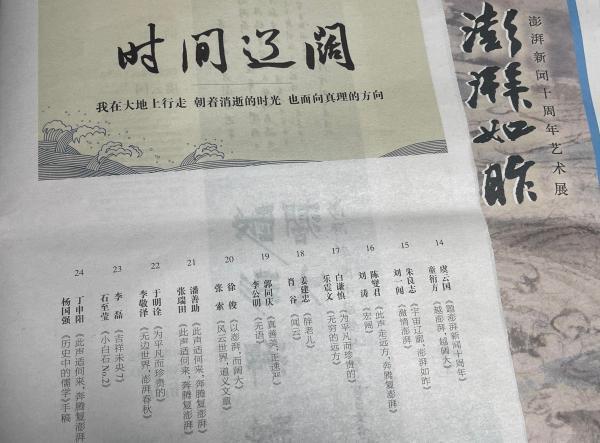 时间辽阔
我在大地上行走 朝着消逝的时光 也面向真理的方向
澎湃如昨
澎湃新闻十周年艺术展
14
虞云国 《题澎湃新闻十周年》
童衍方 《越澎湃，越阔大》
15
朱良志 《宇宙辽廓，澎湃如昨》
刘一闻 《激情澎湃》
16
陈燮君 《此声走远方，奔腾复澎湃》
刘涛 《宏阔》
17
白谦慎 《为平凡而珍贵的》
乐震文 《无穷的远方》
18
姜建忠 《薛老儿》
肖谷 《闻云》
19
郭同庆 《真善美，正速严》
李公明 《无语》
20
徐俊 《以澎湃，而阔大》
张索 《风云世界，道义文章》
21
潘善助 《此声适何来，奔腾复澎湃》
张瑞田 《此声适何来，奔腾复澎湃》
22
于明诠 《为平凡而珍贵的》
李敬泽 《无边世界，澎湃春秋》
23
李磊 《吉祥未央-7》
石至莹 《小白石No.2》
24
丁申阳 《此声适何来，奔腾复澎湃
杨国强 《历史中的儒学》手稿